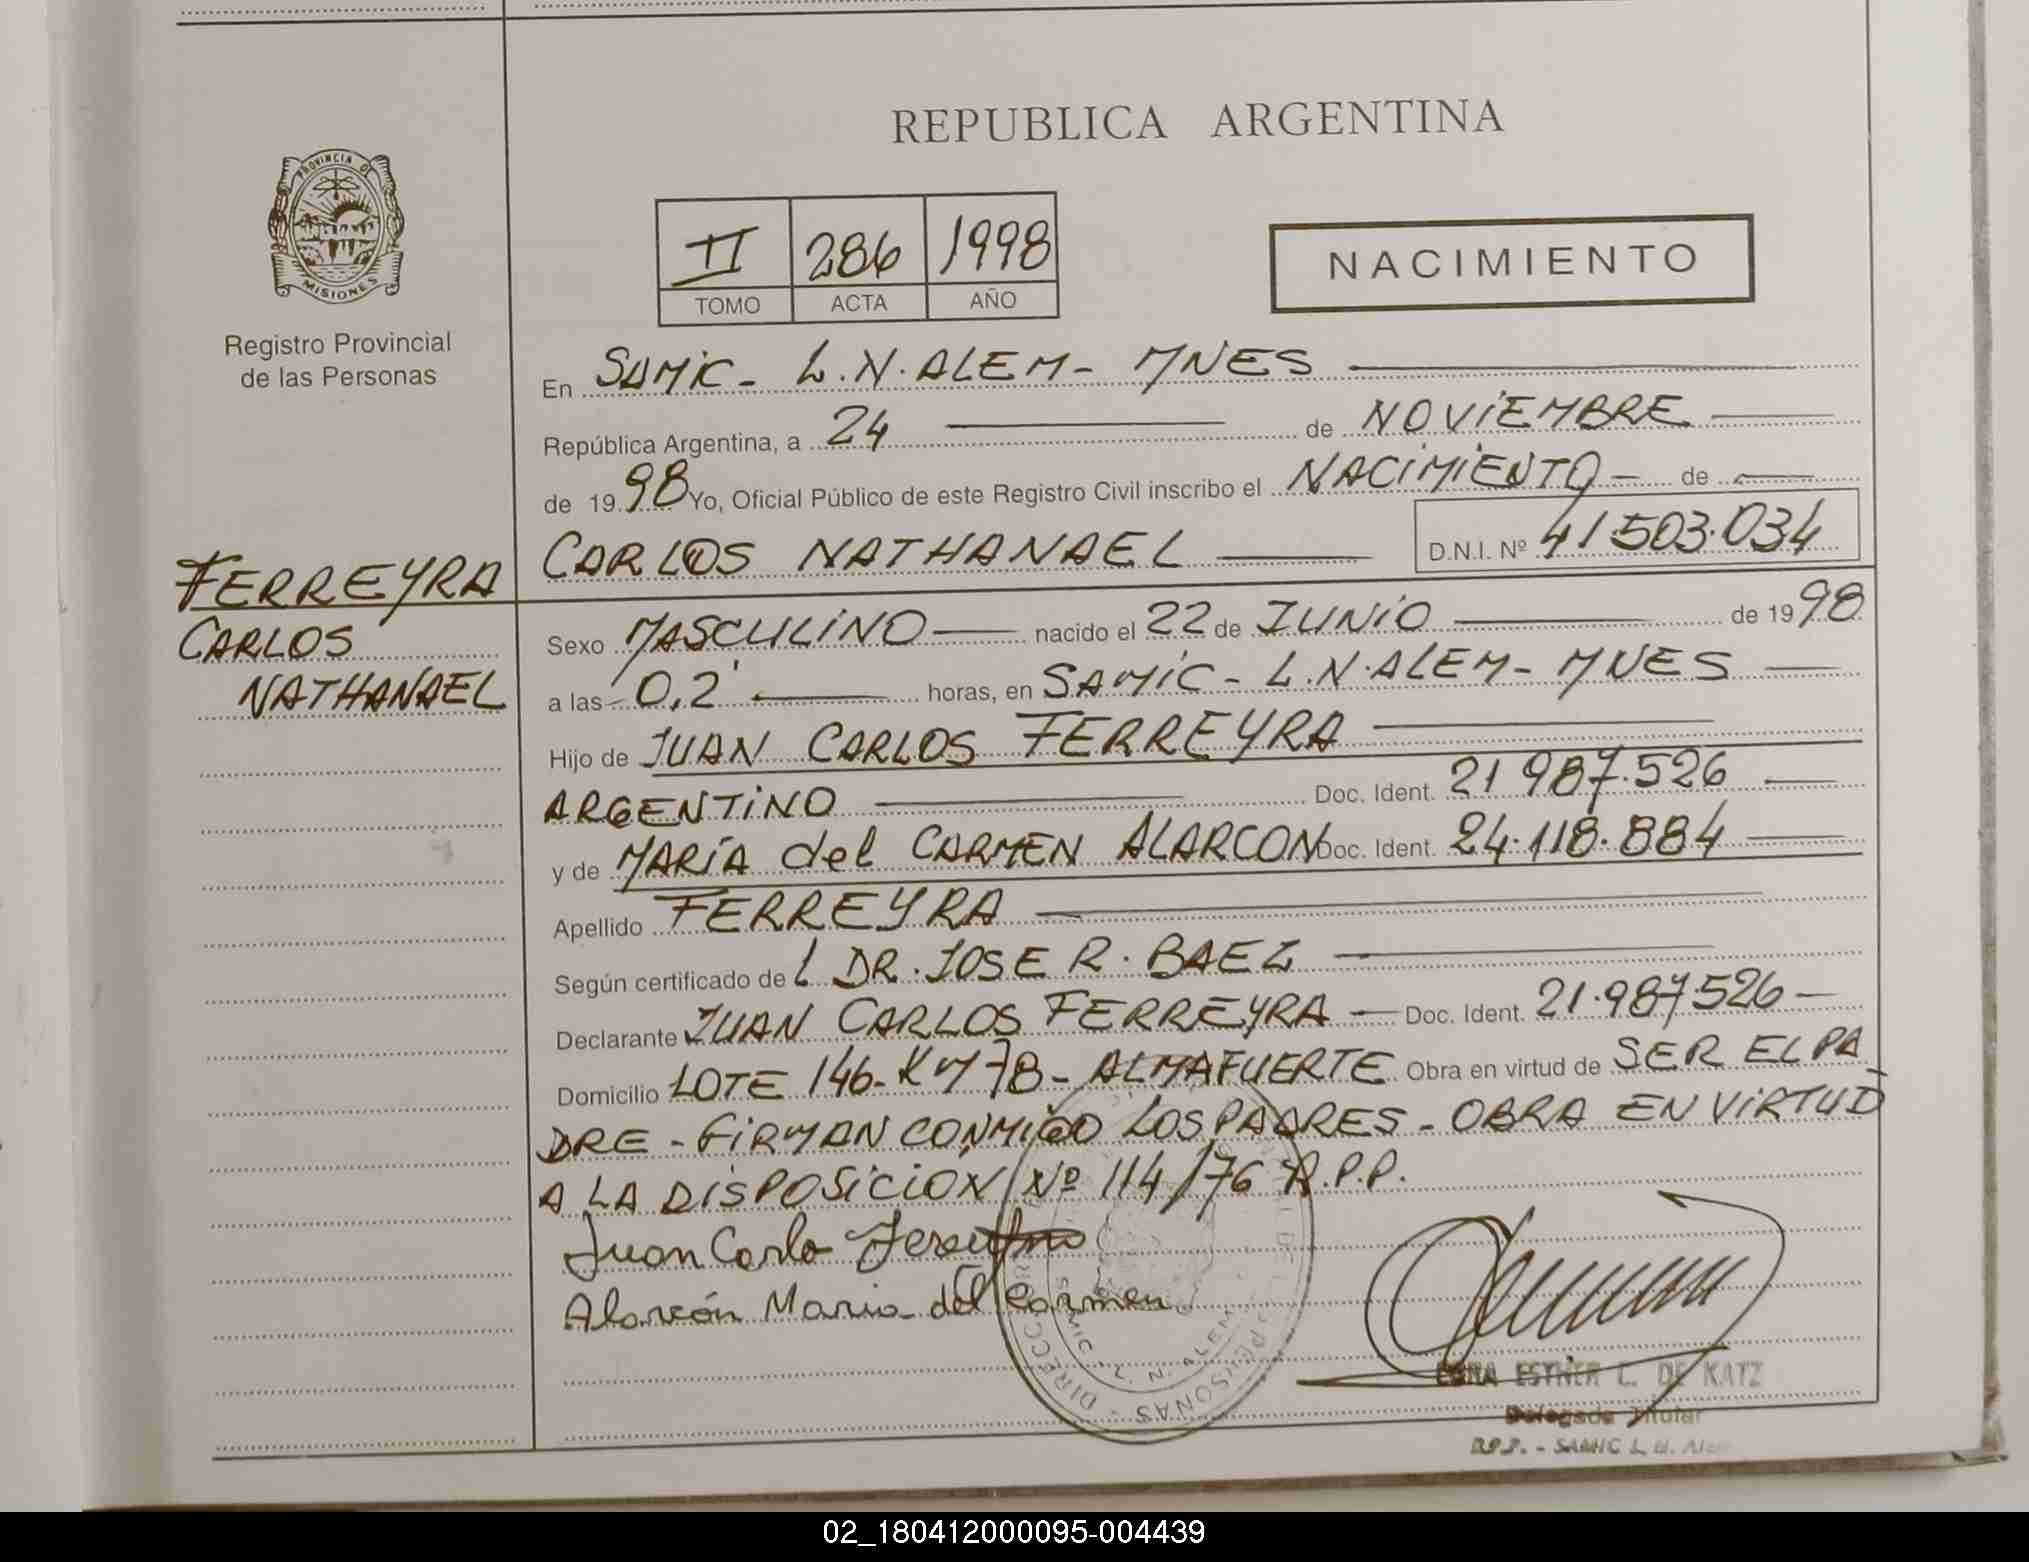 REPUBLICA ARGENTINA
PROVINCIA DE MISIONES
Registro Provincial
de las Personas
II 286 1998
TOMO ACTA AÑO
NACIMIENTO
En SAMIC - L.N. ALEM - MNES
República Argentina, a 24 de NOVIEMBRE
de 1998 Yo, Oficial Público de este Registro Civil inscribo el NACIMIENTO de
CARLOS NATHANAEL D.N.I. Nº 41.503.034
FERREYRA
CARLOS
NATHANAEL
Sexo MASCULINO nacido el 22 de JUNIO de 1998
a las 0,2' horas, en SAMIC - L.N. ALEM - MNES
Hijo de JUAN CARLOS FERREYRA
ARGENTINO Doc. Ident. 21 987.526
y de MARÍA del CARMEN ALARCON Doc. Ident. 24.118.884
Apellido FERREYRA
Según certificado de L DR. JOSE R. BAEZ
Declarante JUAN CARLOS FERREYRA Doc. Ident. 21.987.526
Domicilio LOTE 146 - KM 78 - ALMAFUERTE Obra en virtud de SER EL PA
DRE - FIRMAN CONMIGO LOS PADRES - OBRA EN VIRTUD
A LA DISPOSICION Nº 114/76 R.P.P.
Juan Carlo
Alarcón Maria del Carmen
ESTHER C. DE KATZ
Delegada Titular
- SAMIC L. N.
02_180412000095-004439